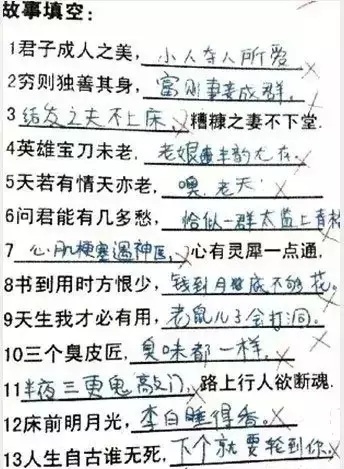 故事填空：
1君子成人之美，小人夺人所爱
2穷则独善其身，富则妻妾成群，
3结发之夫不上床，糟糠之妻不下堂.
4英雄宝刀未老，老娘丰韵尤存.
5天若有情天亦老，噢，老天
6问君能有几多愁，恰似一群太监上青楼
7心肌梗塞遇神医，心有灵犀一点通，
8书到用时方恨少，钱到月底不够花。
9天生我才必有用，老鼠儿子会打洞.
10三个臭皮匠，臭味都一样。
11半夜三更鬼敲门，路上行人欲断魂.
12床前明月光，李白睡得香。
13人生自古谁无死，下个就要轮到你。